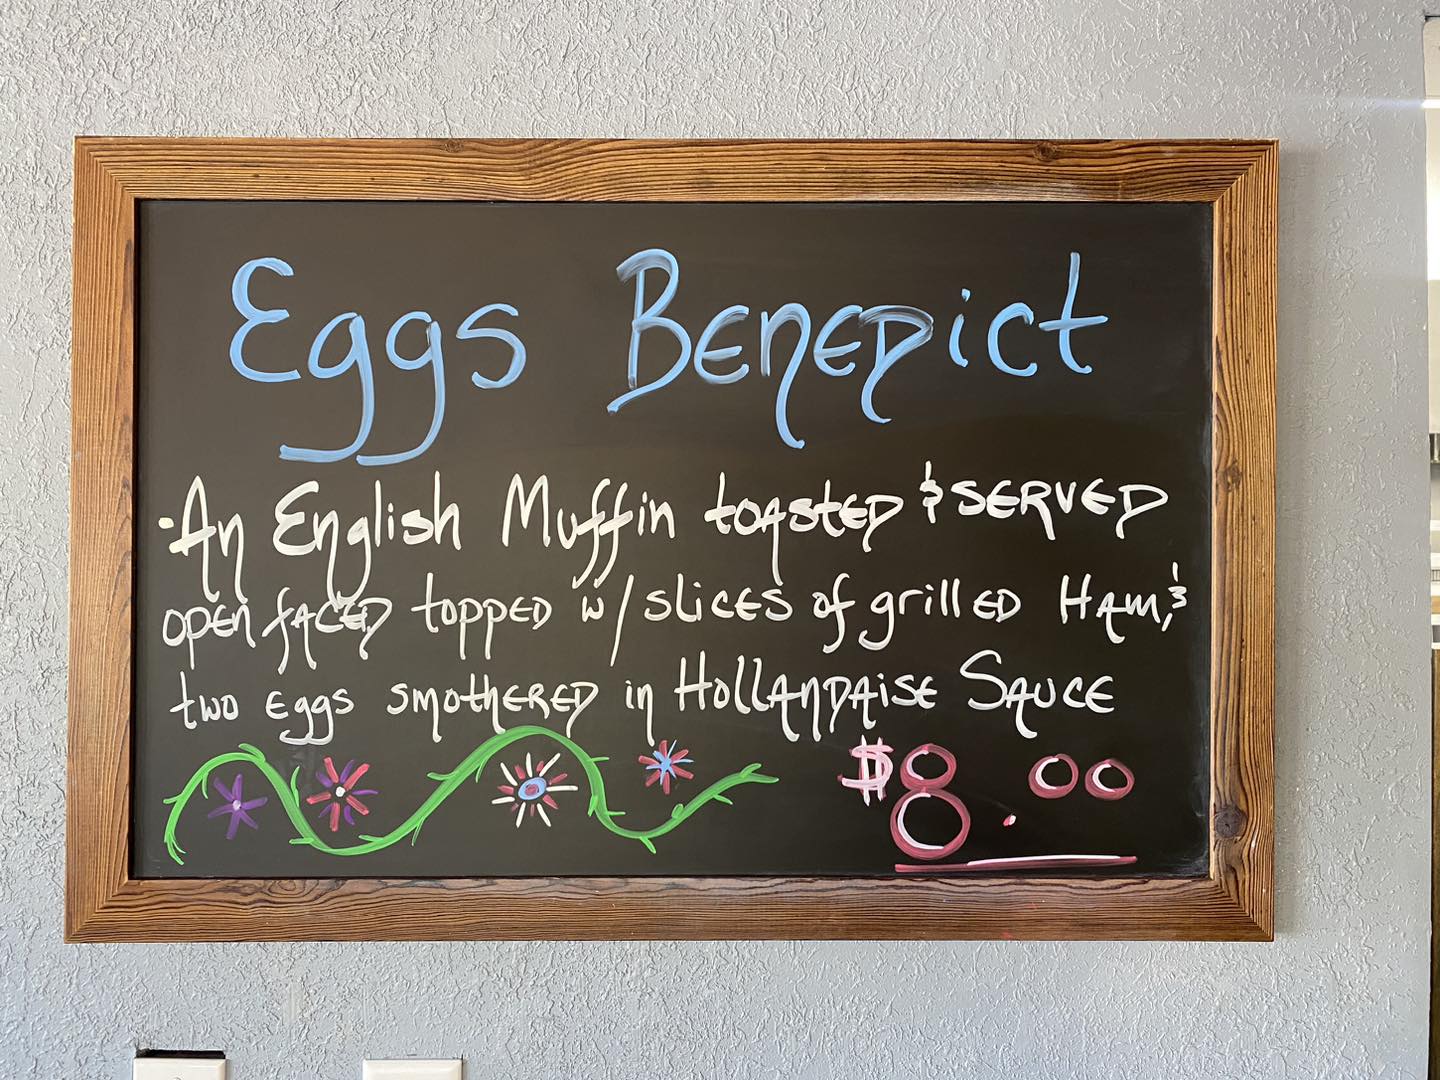 Eggs Benedict
·An English Muffin toasted & served
open faced topped w/ slices of grilled Ham, &
two eggs smothered in Hollandaise Sauce
$8.00